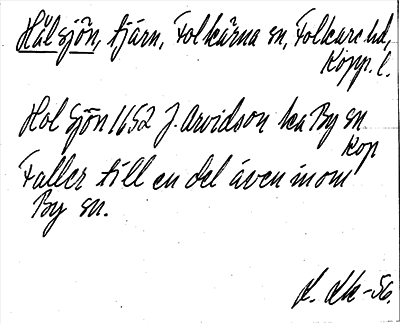 Hålsjön, tjärn, Folkärna sn, Folkare hd,
Kopp. l.
Hol Sjön 1652 J. Arvidson ka By sn
Kop
Faller till en del även inom
By sn.